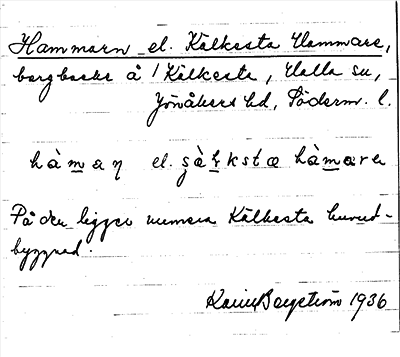 Hammarn el. Kälkesta Hammare,
bergbacke å / Kälkesta, Halla sn,
Jönåkers hd, Söderm. l.
hàman el. çàlkstœ hàmare
På den ligger numera Kälkesta huvud-
byggnad.
Karin Bergström 1936